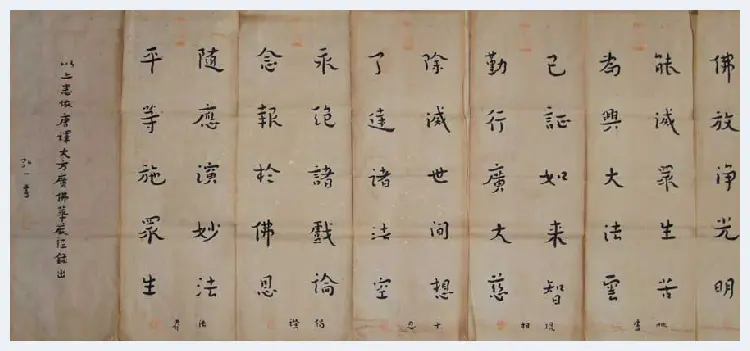 佛放淨光明
能滅眾生苦
為興大法雲
已証如来智
勤行廣大慈
除滅世间想
了達诸法空
永绝諸戲論
念報於佛恩
隨應演妙法
平等施眾生
以上悉依唐譯大方廣佛華嚴經録出
弘一書